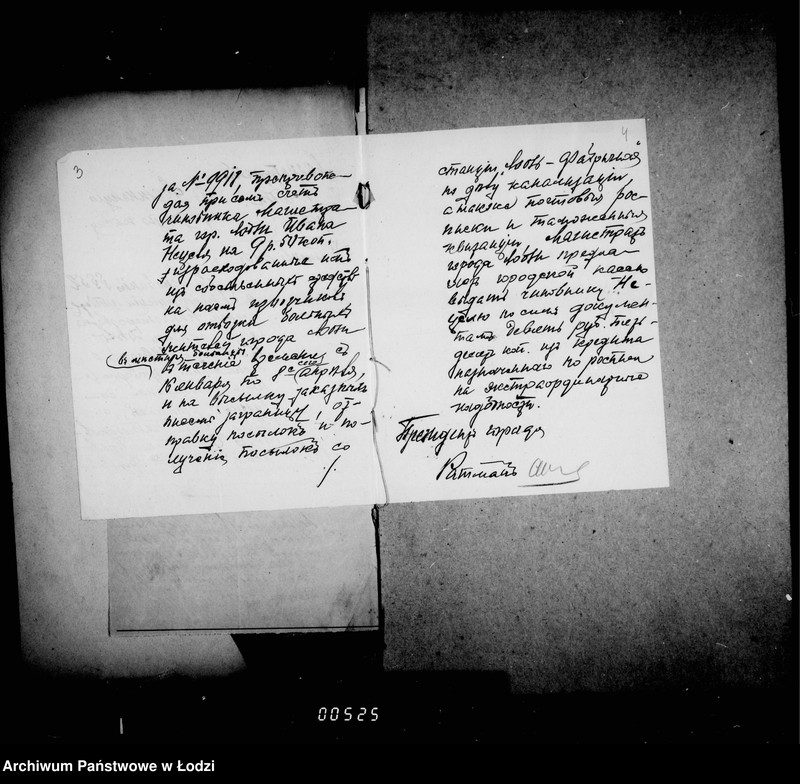 3
за № 9918, препровож-
дая при семъ счетъ
чиновника Магистра-
та гор. Лодзи Ивана
на 9 р. 50 коп.
израсходованныхъ имъ
изъ собственныхъ средствъ
на наемъ извозчиковъ
для отвозки больныхъ
жителей города Лодзи
въ теченіи времени съ
Января по 8 сего Апрѣля,
и на высылку заказныхъ
писемъ заграницу, от-
правку посылокъ и по-
лученіе посылокъ со
./.
4
станціи Лодзь-Фабричная
по дѣлу канализаціи,
а также почтовыя рос-
писки и таможенныя
квитанціи, Магистратъ
города Лодзи предла-
гаетъ городской кассѣ
выдать чиновнику
по симъ докумен-
тамъ девять руб. пять-
десятъ коп. изъ кредита
назначеннаго по росписи
на экстраординарныя
надобности.
Президентъ города
Ратманъ
00525
Archiwum Państwowe w Łodzi